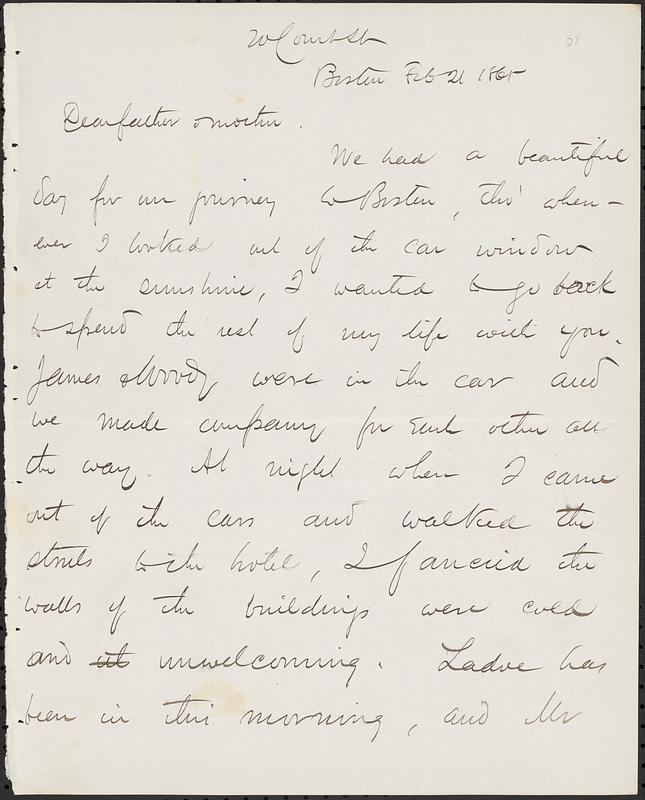 20 Court St
Boston Feb 21 1865
Dear father & mother.
We had a beautiful
day for our journey to Boston, tho' when-
ever I looked out of the car window
at the sunshine, I wanted to go back
to spend the rest of my life with you.
James & Woody were in the car and
we made company for each other all
the way. At night when I came
out of the cars and walked the
streets to the hotel, I fancied the
walls of the buildings were cold
and unwelcoming. Ladue has
been in this morning, and Mr